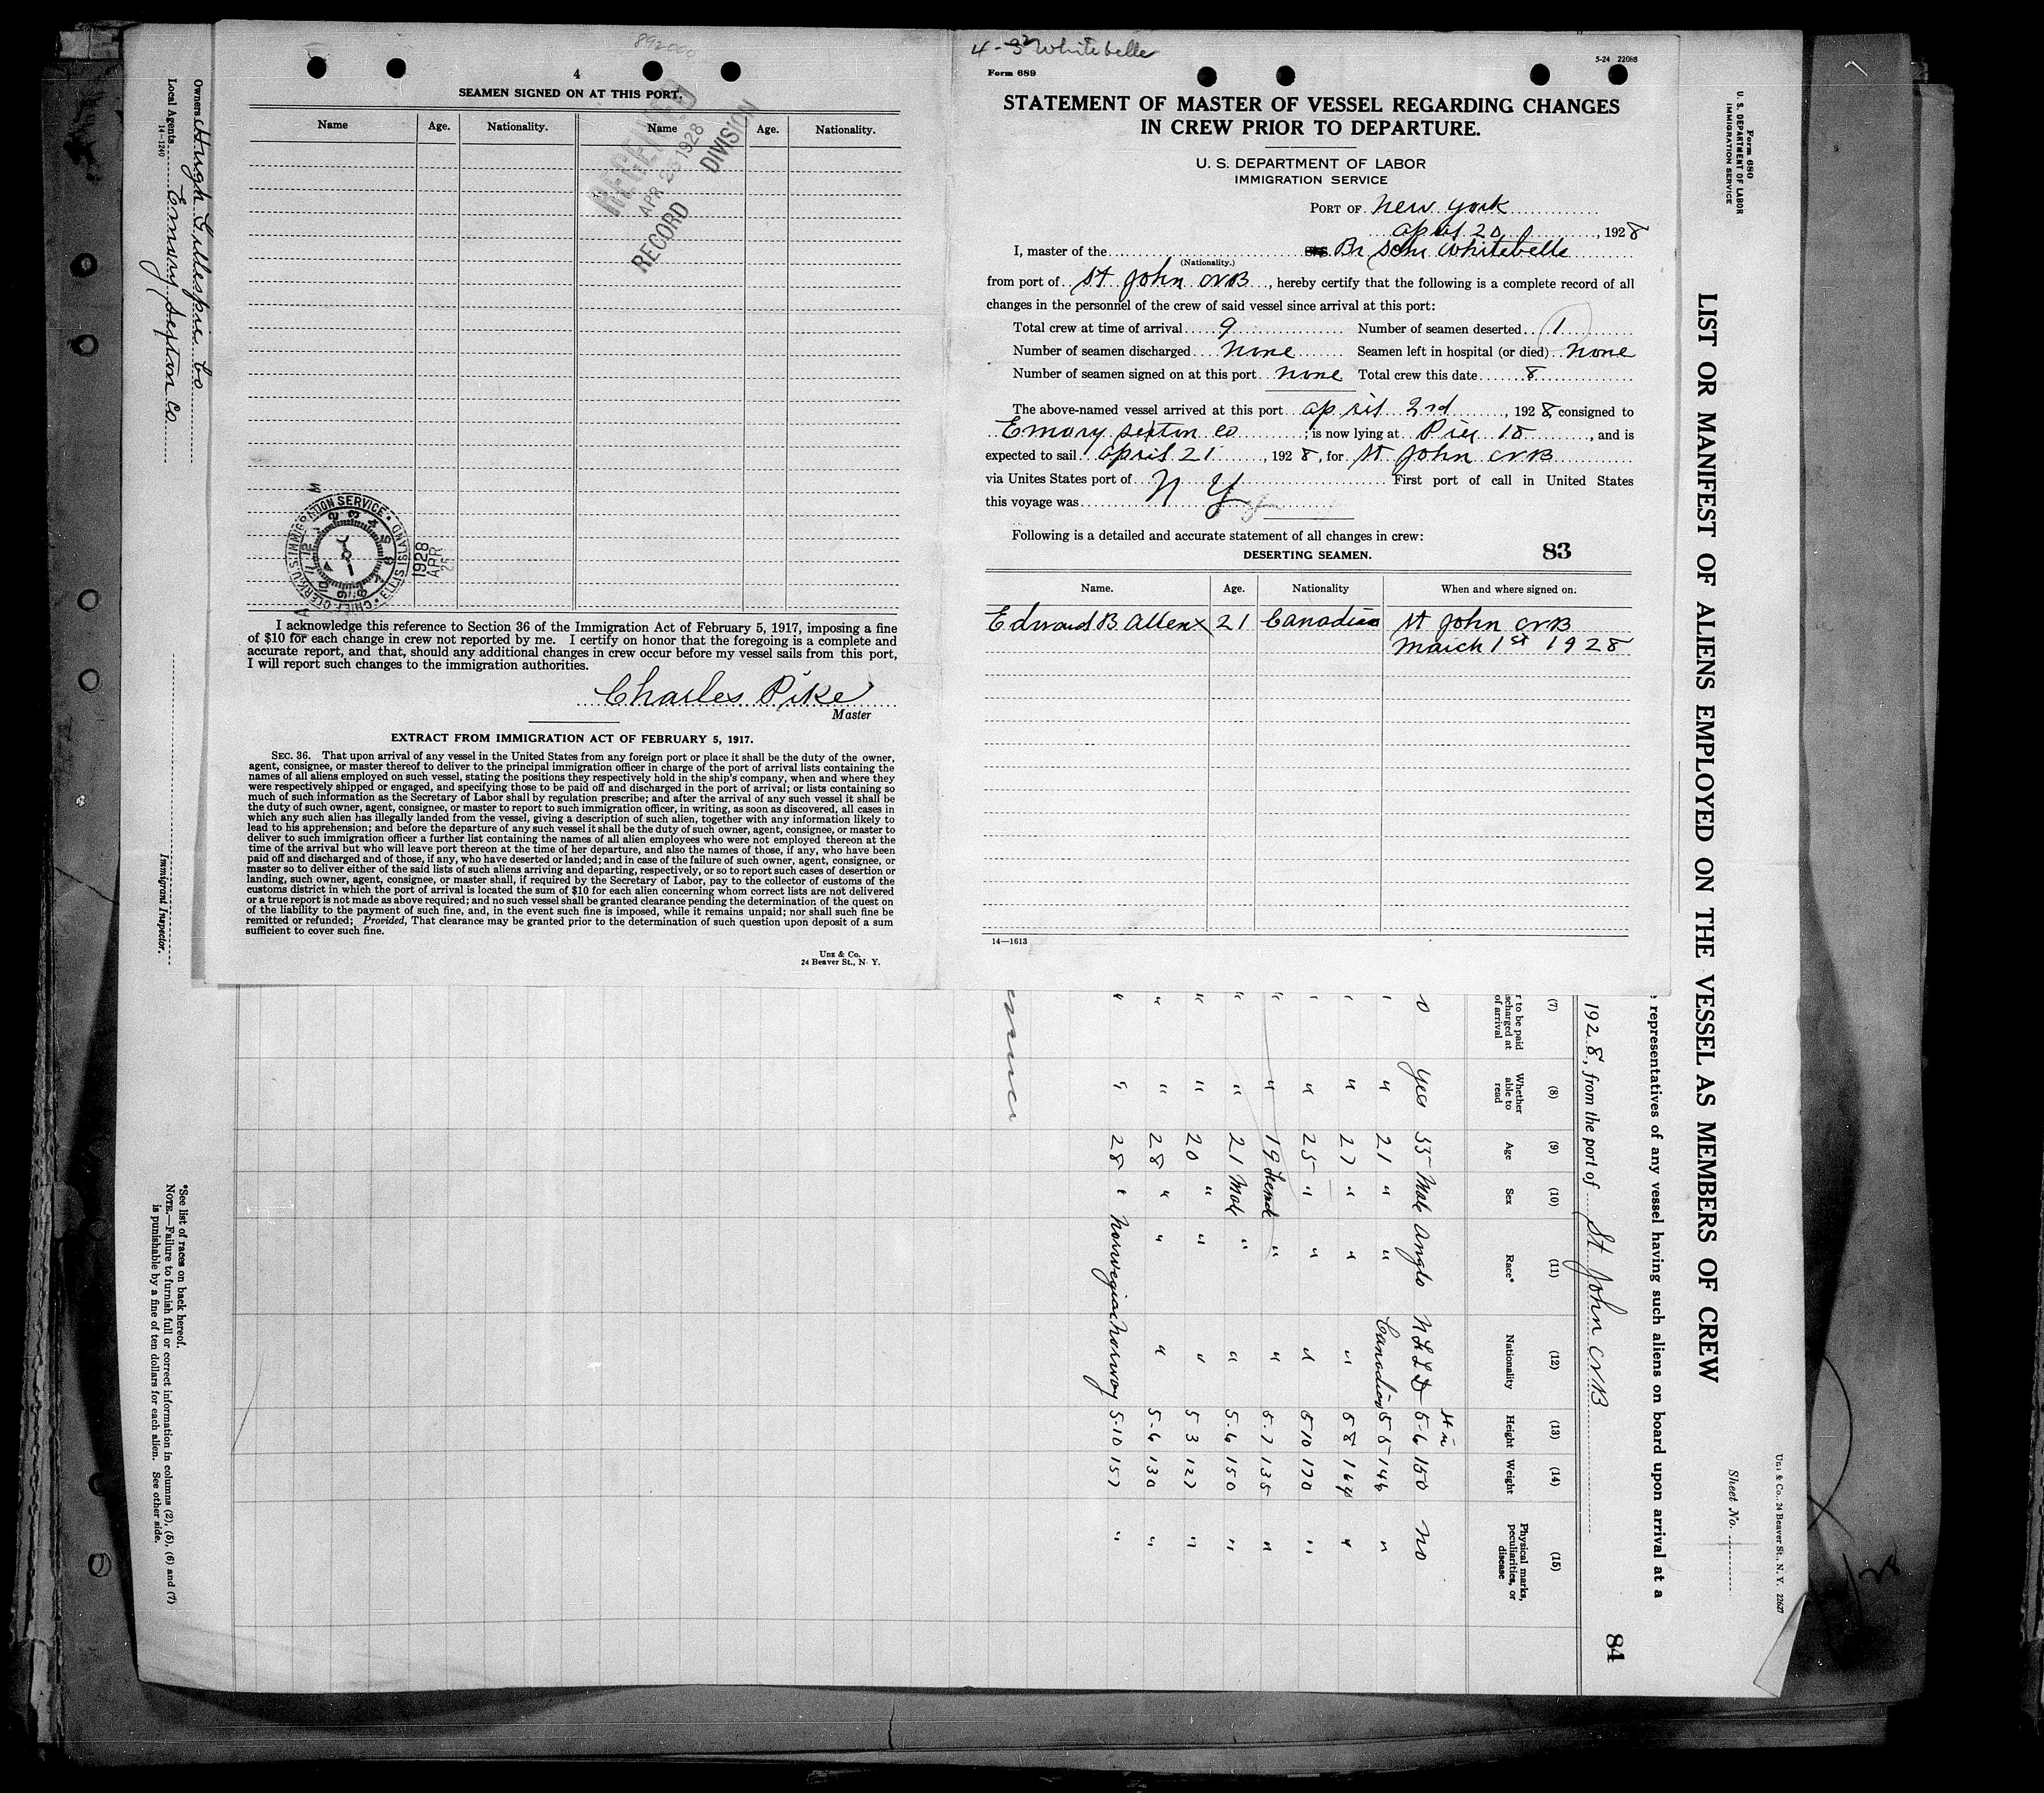 892000
4
SEAMEN SIGNED ON AT THIS PORT.
Name Age. Nationality. Name Age. Nationality.
RECEIVED
APR 25 1928
RECORD DIVISION
U.S. IMMIGRATION SERVICE
CHIEF CLERK ELLIS ISLAND
1928
APR
25
I acknowledge this reference to Section 36 of the Immigration Act of February 5, 1917, imposing a fine
of $10 for each change in crew not reported by me. I certify on honor that the foregoing is a complete and
accurate report, and that, should any additional changes in crew occur before my vessel sails from this port,
I will report such changes to the immigration authorities.
Charles Pike
Master
EXTRACT FROM IMMIGRATION ACT OF FEBRUARY 5, 1917.
SEC. 36. That upon arrival of any vessel in the United States from any foreign port or place it shall be the duty of the owner,
agent, consignee, or master thereof to deliver to the principal immigration officer in charge of the port of arrival lists containing the
names of all aliens employed on such vessel, stating the positions they respectively hold in the ship's company, when and where they
were respectively shipped or engaged, and specifying those to be paid off and discharged in the port of arrival; or lists containing so
much of such information as the Secretary of Labor shall by regulation prescribe; and after the arrival of any such vessel it shall be
the duty of such owner, agent, consignee, or master to report to such immigration officer, in writing, as soon as discovered, all cases in
which any such alien has illegally landed from the vessel, giving a description of such alien, together with any information likely to
lead to his apprehension; and before the departure of any such vessel it shall be the duty of such owner, agent, consignee, or master to
deliver to such immigration officer a further list containing the names of all alien employees who were not employed thereon at the
time of the arrival but who will leave port thereon at the time of her departure, and also the names of those, if any, who have been
paid off and discharged and of those, if any, who have deserted or landed; and in case of the failure of such owner, agent, consignee, or
master so to deliver either of the said lists of such aliens arriving and departing, respectively, or so to report such cases of desertion or
landing, such owner, agent, consignee, or master shall, if required by the Secretary of Labor, pay to the collector of customs of the
customs district in which the port of arrival is located the sum of $10 for each alien concerning whom correct lists are not delivered
or a true report is not made as above required; and no such vessel shall be granted clearance pending the determination of the quest on
of the liability to the payment of such fine, and, in the event such fine is imposed, while it remains unpaid; nor shall such fine be
remitted or refunded; Provided, That clearance may be granted prior to the determination of such question upon deposit of a sum
sufficient to cover such fine.
Unz & Co.
24 Beaver St., N. Y.
4 - 32 Whitebelle
Form 689
5-24 22088
STATEMENT OF MASTER OF VESSEL REGARDING CHANGES
IN CREW PRIOR TO DEPARTURE.
U. S. DEPARTMENT OF LABOR
IMMIGRATION SERVICE
PORT OF New York
April 20, 1928
I, master of the Br Schr Whitebelle
(Nationality.)
from port of St John NB, hereby certify that the following is a complete record of all
changes in the personnel of the crew of said vessel since arrival at this port:
Total crew at time of arrival 9 Number of seamen deserted 1
Number of seamen discharged none Seamen left in hospital (or died) none
Number of seamen signed on at this port none Total crew this date 8
The above-named vessel arrived at this port april 2nd, 1928, consigned to
Emory Sexton Co; is now lying at Pier 10, and is
expected to sail april 21, 1928, for St John NB
via Unites States port of N Y First port of call in United States
this voyage was
Following is a detailed and accurate statement of all changes in crew:
DESERTING SEAMEN.
83
Name. Age. Nationality When and where signed on.
Edward B Allen x 21 Canadian St John NB
March 1st 1928
14—1613
Form 680
U. S. DEPARTMENT OF LABOR
IMMIGRATION SERVICE
LIST OR MANIFEST OF ALIENS EMPLOYED ON THE VESSEL AS MEMBERS OF CREW
Sheet No.
Unz & Co. 24 Beaver St., N. Y. 22627
representatives of any vessel having such aliens on board upon arrival at a
1928, from the port of St John NB
84
(7) (8) (9) (10) (11) (12) (13) (14) (15)
r to be paid
scharged at
of arrival
Whether
able to
read
Age Sex Race* Nationality Height Weight
Physical marks,
peculiarities, or
disease
o yes 35 Male Anglo NFLD 5-6 150 no
" " 21 " " Canadian 5 5 146 "
" " 27 " " " 5 8 164 "
" " 25 " " " 5 10 170 "
" " 19 Femal " " 5-7 135 "
" " 21 Male " " 5-6 150 "
" " 20 " " " 5 3 127 "
" " 28 " " " 5-6 130 "
" " 28 " Norwegian Norway 5-10 157 "
Owners Hugh Gillespie Co
Local Agents Emory Sexton Co
14-1240
Immigrant Inspector.
*See list of races on back hereof.
NOTE.—Failure to furnish full or correct information in columns (2), (5), (6) and (7)
is punishable by a fine of ten dollars for each alien. See other side.